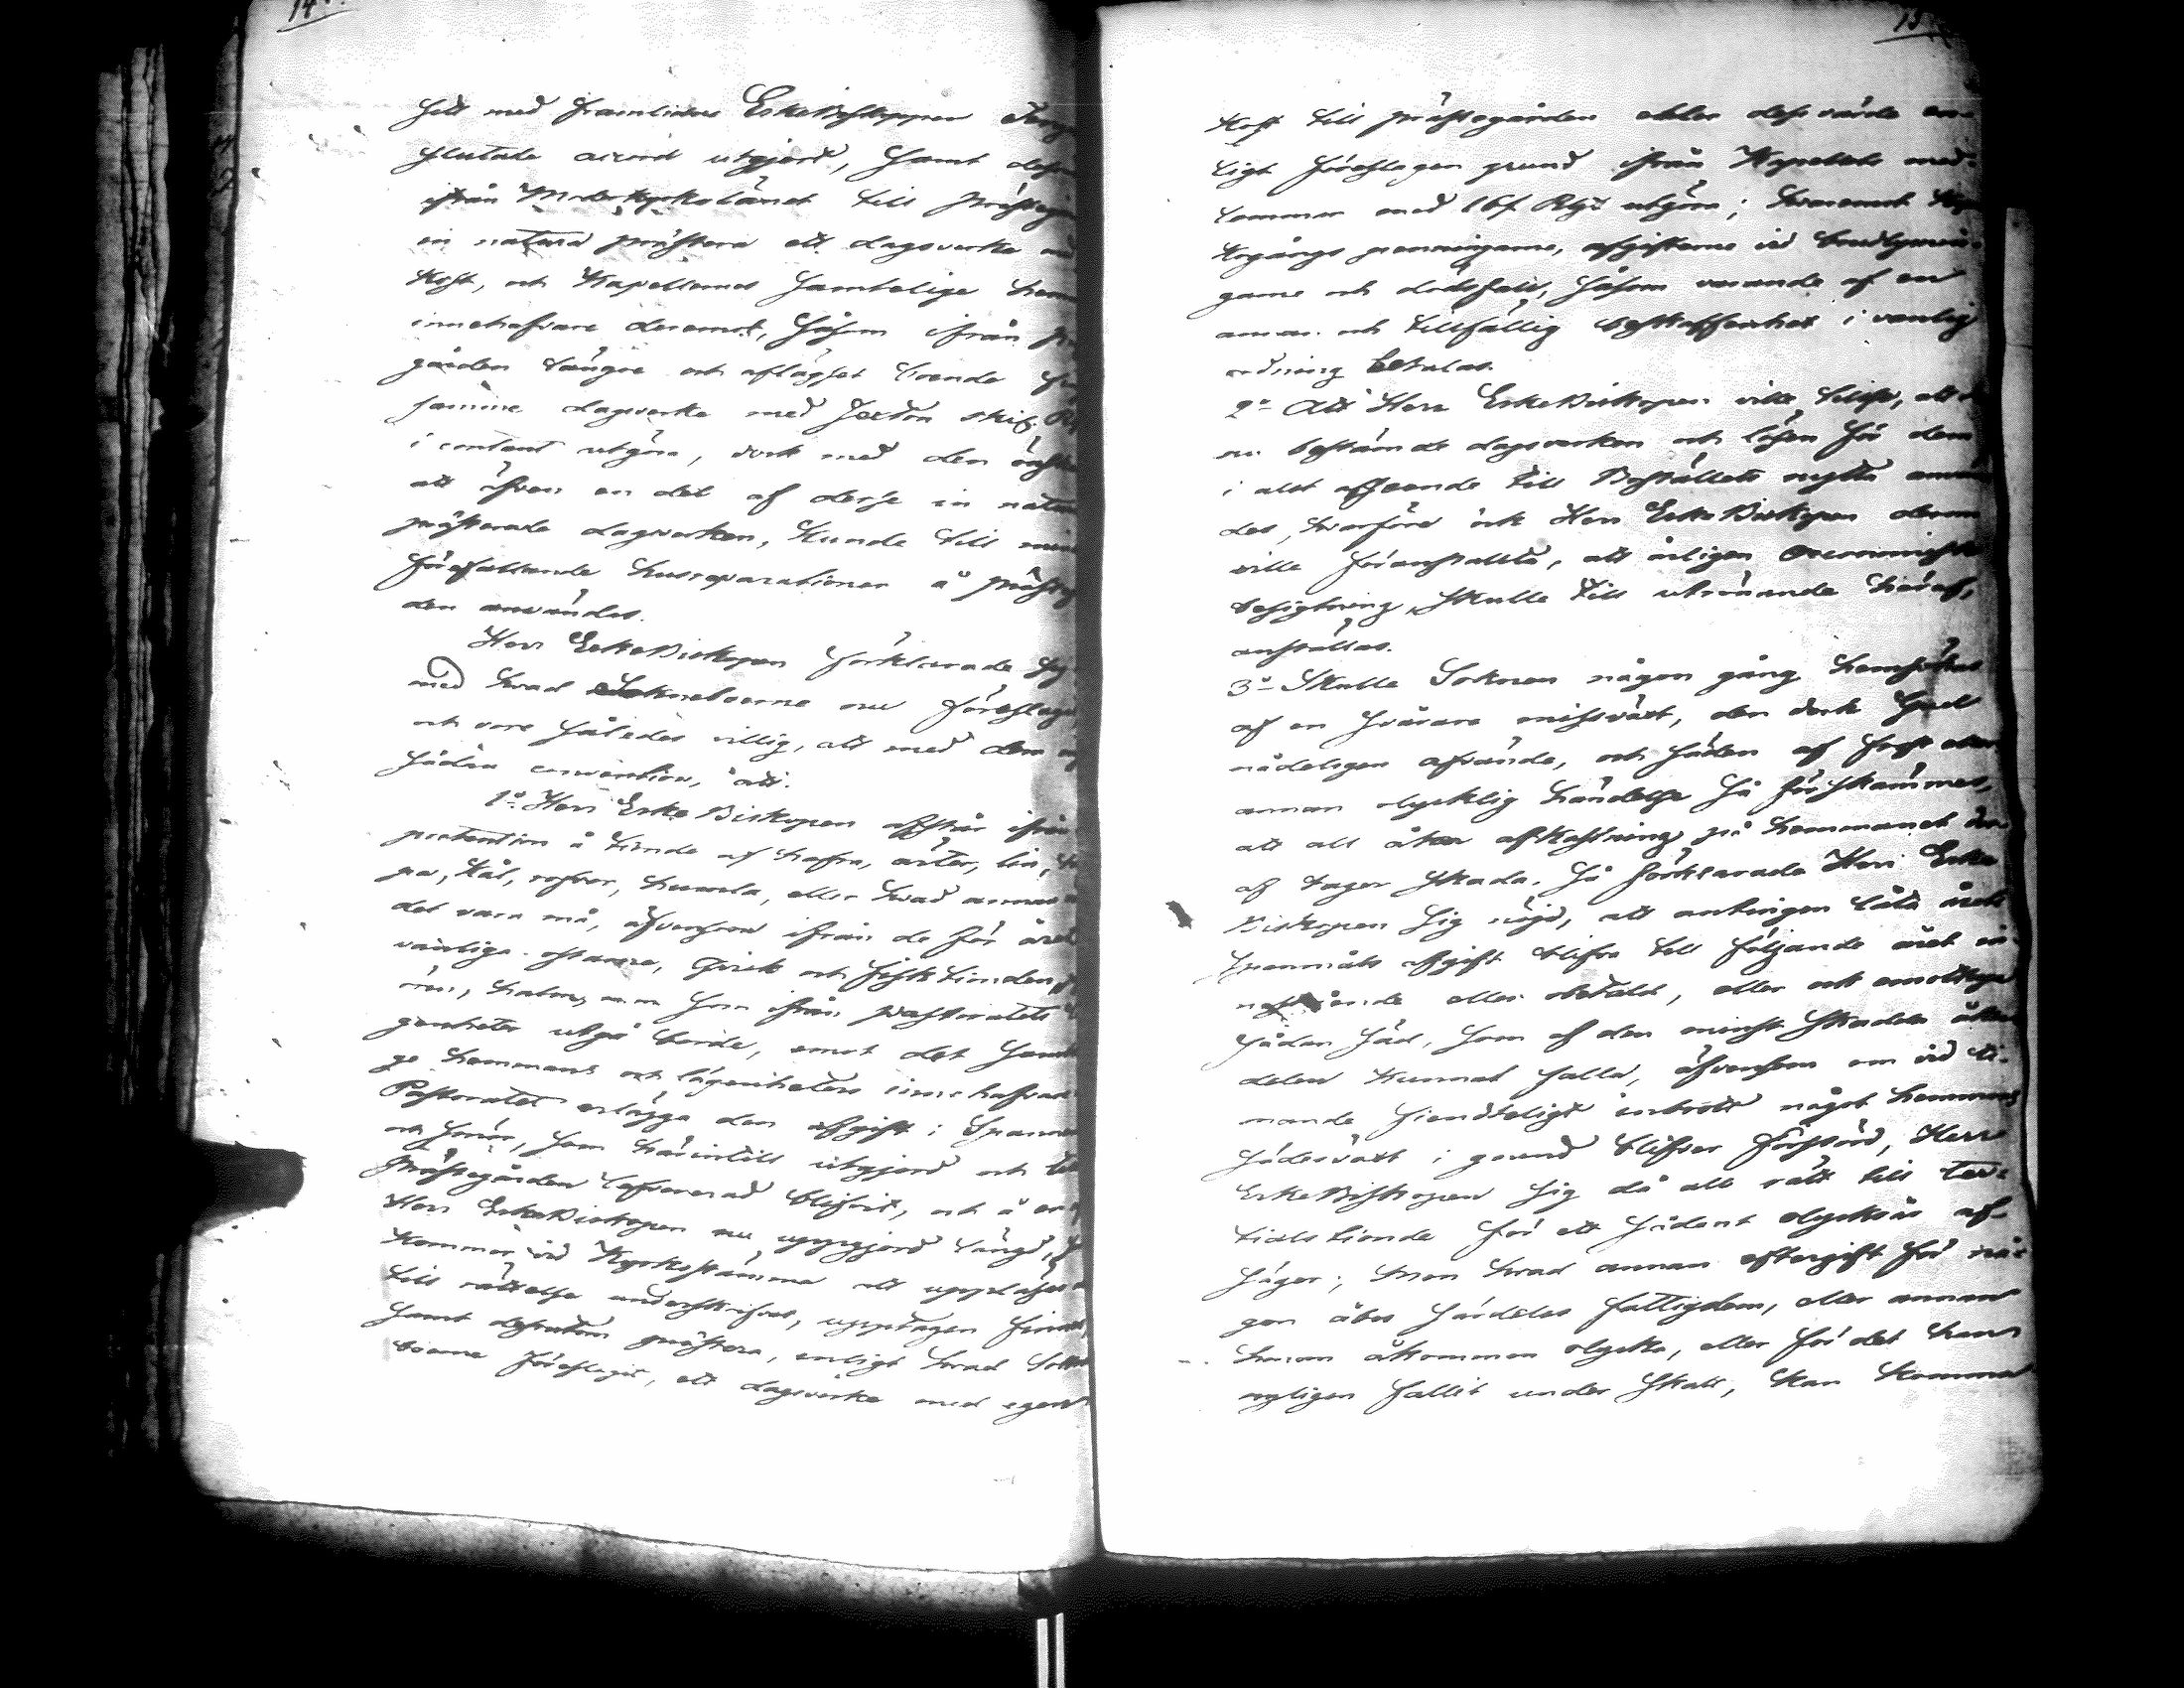 14
sett med framlidne ErkeBiskoppen
slutade accord utgjord, samt
ifrån Moderkyrkolänet till
in natura præstera ett dagsverke
kost, och Kapellernas samtelige
innehafvare deremot, såsom ifrån
gården längre och aflägset boende
samme dagsverke med Sexton skil.
i contant utgöra, dock med den
att äfven en del af desse in
præsterade dagsverken, kunde till
förefallande husreparationer å
den användes.
Herr ErkeBiskopen förklarade sig
med hvad Sokneboerne nu
och vore således villig, att med dem
sådan convention, att:
1o Herr Erke Biskopen afstår ifrån
pretention å tionde af hafra, ärter, lin,
pa, kål, rofvor, humla, eller hvad annat
det vara må, äfvensom ifrån de för
vanliga ostarne, Qvick och fisk tionden,
halm, m.m som ifrån Pastoratets
genheter utgå borde, emot det
ge hemmans och lägenheters innehafvare
Pastoratet erlägga den afgift i Spannmål
och som härintill utgjord och
Prästegården lefvererad blifvit, och å en
Herr ErkeBiskopen nu uppgjord längd,
kommer vid Kyrkostämma att uppläsas
till rättelse underskrifvas, upptagen finnes,
samt dessutom præstera, enligt hvad
boerne föreslagit, ett dagsverke med egen
15
kost till prästegården eller dess värde en-
ligt föreslagen grund ifrån Kapellets med-
lemmar med 16 s. Rgs utgöra; hvaremot
kogångs penningarne, afgifterne vid
game och dödsfall, såsom varande af en
annan och tillfällig beskaffenhet i vanlig
ordning betalas.
2o Att Herr ErkeBiskopen ville tillse, att
nu bestämde dagsverken och lösen för dem
i allt afseende till Boställets nytta
des, hvarföre ock Herr ErkeBiskopen derom
ville föranstalta, att årligen
besigtning, skulle till utrönande häraf,
anställas.
3o Skulle Soknen någon gång hemsökas
af en svårare missväxt, den dock Gud
nådeligen afvände, och säden af frost eller
annan olycklig händelse så förskämmes,
att all åker afkastning på hemmanet
af tager skada, så förklarade Herr Erke
Biskopen sig nöjd, att antingen låta årets
spannmåls afgift blifva till följande året
eller obetald, eller ock emottaga
sådan säd, som af den minst skadda åker
delen kunnat falla, äfvensom om vid ti-
mande fiendteligt inbrott något hemmans
sädesväxt i grund blifver förstörd, Herr
ErkeBiskopen sig då all rätt till
tids tionde för ett sådant olycksår af-
säger; Men hvad annan eftergift för
gon åbos särdeles fattigdom, eller annan
honom åkommen olycka, eller för det
nyligen fallit under skatt, kan komma